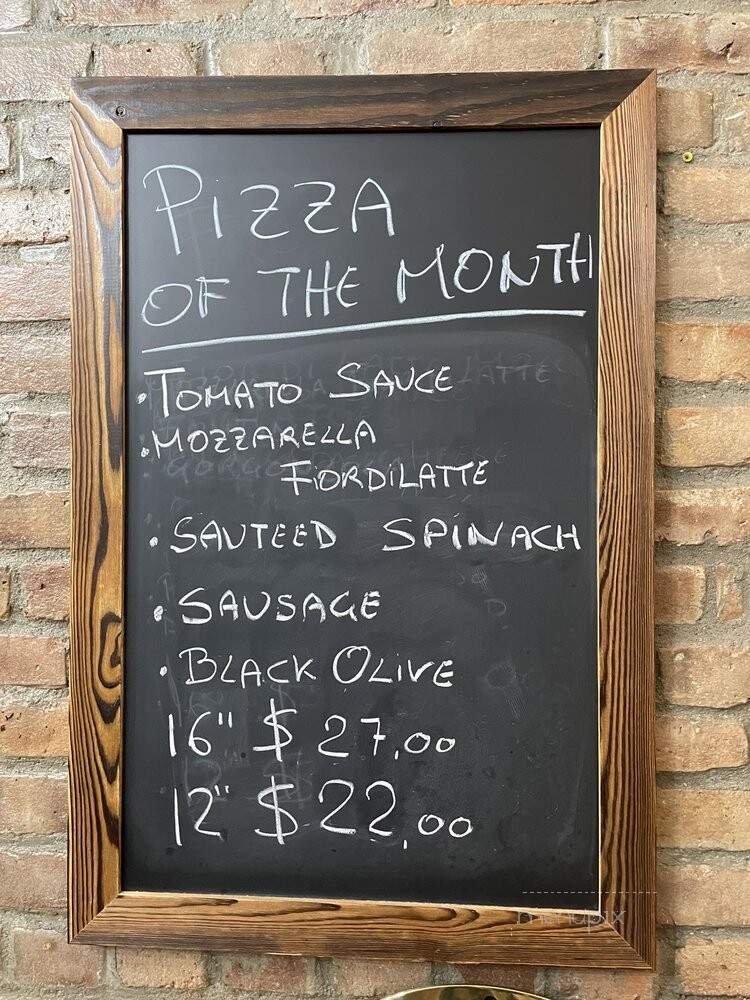 PiZZA
OF THE MONTH
·TOMATO SAUCE
·MOZZARELLA
FIORDILATTE
·SAUTEED SPINACH
·SAUSAGE
·BLACK OLIVE
16" $ 27,00
12" $ 22,00
menupix